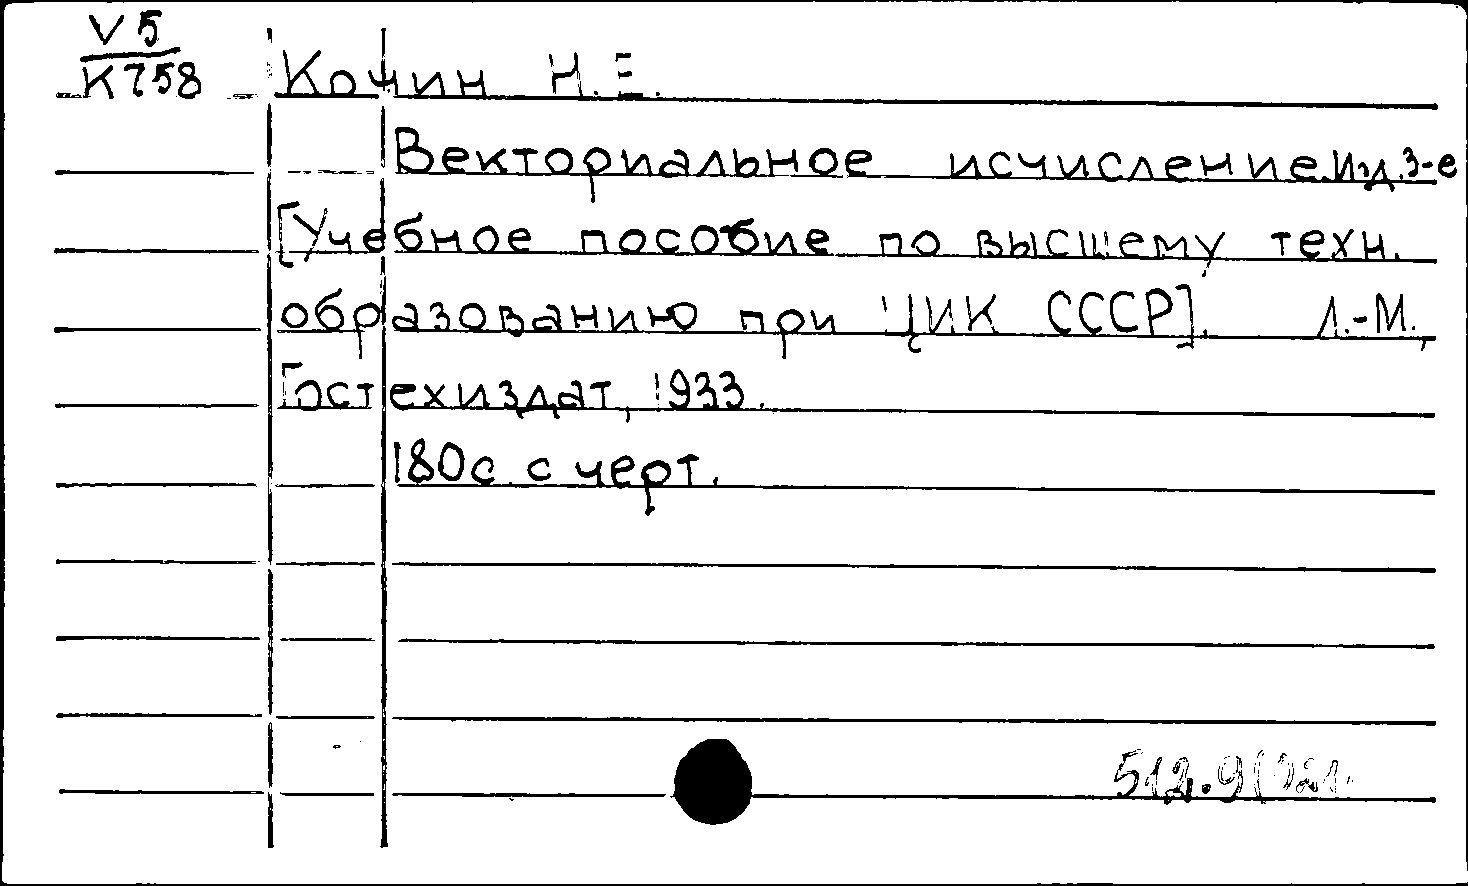 V5
К758
Кочин Н.Е.
Векториальное исчисление. Изд. 3-е
[Учебное пособие по высшему техн.
образованию при ЦИК СССР]. Л.-М.,
Гостехиздат, 1933.
180с. с черт.